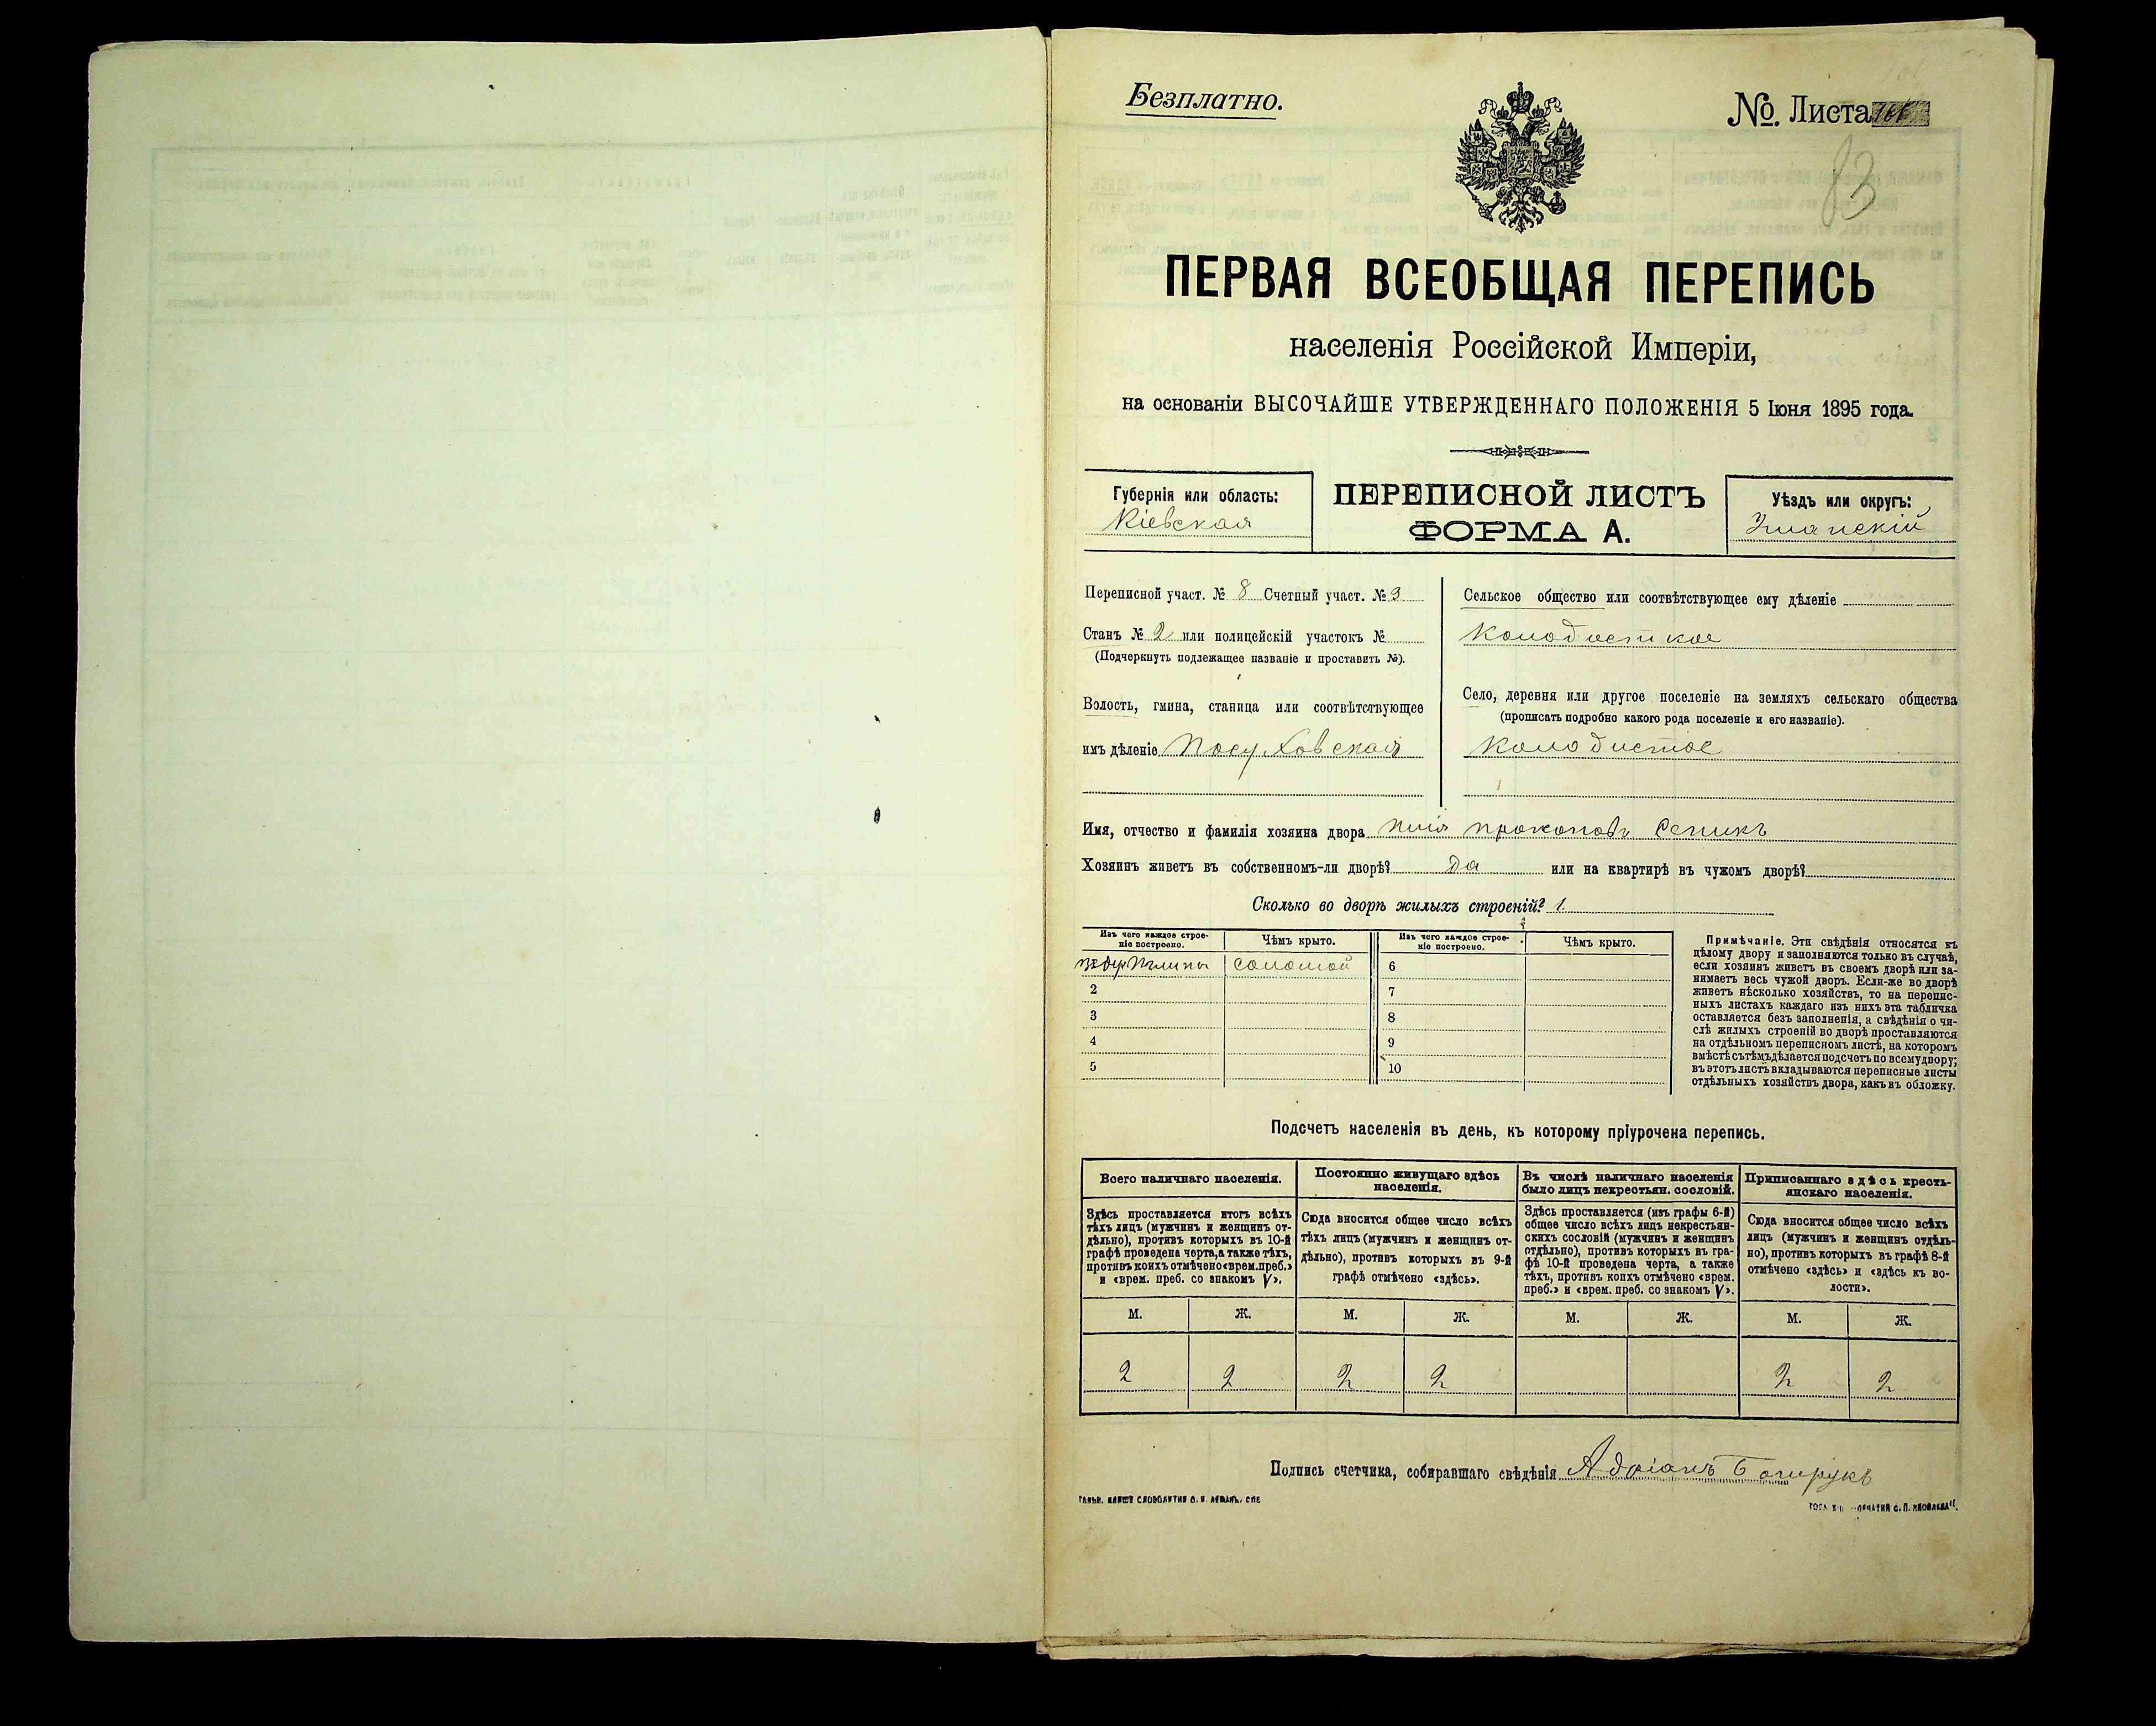 Безплатно.
No. Листа
83
ПЕРВАЯ ВСЕОБЩАЯ ПЕРЕПИСЬ
населенія Россійской Имперіи,
на основаніи ВЫСОЧАЙШЕ УТВЕРЖДЕННАГО ПОЛОЖЕНІЯ 5 Іюня 1895 года.
Губернія или область:
Кіевская
ПЕРЕПИСНОЙ ЛИСТЪ
ФОРМА А.
Уѣздъ или округъ:
Уманскій
Переписной участ. № 8 Счетный участ. № 3
Станъ № 2 или полицейскій участокъ №
(Подчеркнуть подлежащее названіе и проставить №).
Волость, гмина, станица или соотвѣтствующее
имъ дѣленіе Посуховская
Сельское общество или соотвѣтствующее ему дѣленіе
Колодисткое
Село, деревня или другое поселеніе на земляхъ сельскаго общества
(прописать подробно какого рода поселеніе и его названіе).
Колодистое
Имя, отчество и фамилія хозяина двора Илія Прокоповъ Сепикъ
Хозяинъ живетъ въ собственномъ-ли дворѣ? Да или на квартирѣ въ чужомъ дворѣ?
Сколько во дворѣ жилыхъ строеній? 1.
Изъ чего каждое строе-
ніе построено.
Чѣмъ крыто.
Изъ чего каждое строе-
ніе построено.
Чѣмъ крыто.
глины соломой 6
2 7
3 8
4 9
5 10
Примѣчаніе. Эти свѣдѣнія относятся къ
цѣлому двору и заполняются только въ случаѣ,
если хозяинъ живетъ въ своемъ дворѣ или за-
нимаетъ весь чужой дворъ. Если-же во дворѣ
живетъ нѣсколько хозяйствъ, то на перепис-
ныхъ листахъ каждаго изъ нихъ эта табличка
оставляется безъ заполненія, а свѣдѣнія о чи-
слѣ жилыхъ строеній во дворѣ проставляются
на отдѣльномъ переписномъ листѣ, на которомъ
вмѣстѣ съ тѣмъ дѣлается подсчетъ по всему двору;
въ этотъ листъ вкладываются переписные листы
отдѣльныхъ хозяйствъ двора, какъ въ обложку.
Подсчетъ населенія въ день, къ которому пріурочена перепись.
Всего наличнаго населенія.
Здѣсь проставляется итогъ всѣхъ
тѣхъ лицъ (мужчинъ и женщинъ от-
дѣльно), противъ которыхъ въ 10-й
графѣ проведена черта, а также тѣхъ,
противъ коихъ отмѣчено «врем. преб.»
и «врем. преб. со знакомъ V».
Постоянно живущаго здѣсь
населенія.
Сюда вносится общее число всѣхъ
тѣхъ лицъ (мужчинъ и женщинъ от-
дѣльно), противъ которыхъ въ 9-й
графѣ отмѣчено «здѣсь».
Въ числѣ наличнаго населенія
было лицъ некрестьян. сословій.
Здѣсь проставляется (изъ графы 6-й)
общее число всѣхъ лицъ некрестьян-
скихъ сословій (мужчинъ и женщинъ
отдѣльно), противъ которыхъ въ гра-
фѣ 10-й проведена черта, а также
тѣхъ, противъ коихъ отмѣчено «врем.
преб.» и «врем. преб. со знакомъ V».
Приписаннаго здѣсь кресть-
янскаго населенія.
Сюда вносится общее число всѣхъ
лицъ (мужчинъ и женщинъ отдѣль-
но), противъ которыхъ въ графѣ 8-й
отмѣчено «здѣсь» и «здѣсь къ во-
лости».
М. Ж. М. Ж. М. Ж. М. Ж.
2 2 2 2 2 2
Подпись счетчика, собиравшаго свѣдѣнія Адріанъ